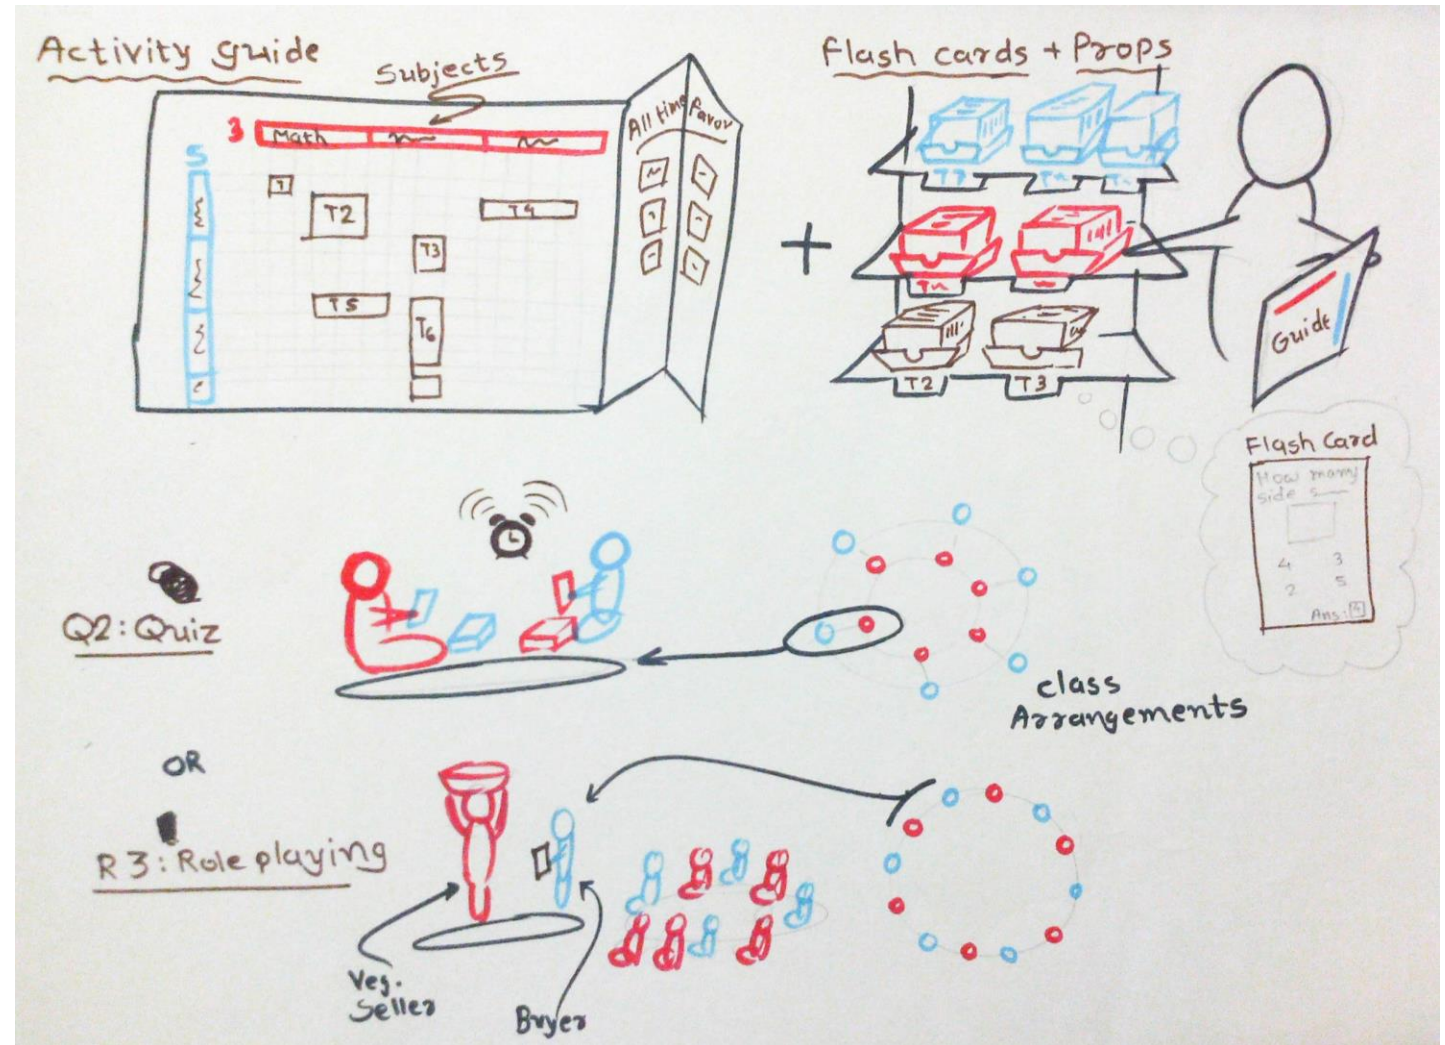 Activity guide
Subjects
3 Math
5
T2
T4
T3
T5
T6
All time favor
Flash cards + Props
T2
T3
Guide
Flash Card
How many
side s
4 3
2 5
Ans: 4
Q2: Quiz
class
Arrangements
OR
R3: Role playing
Veg.
Seller
Buyer